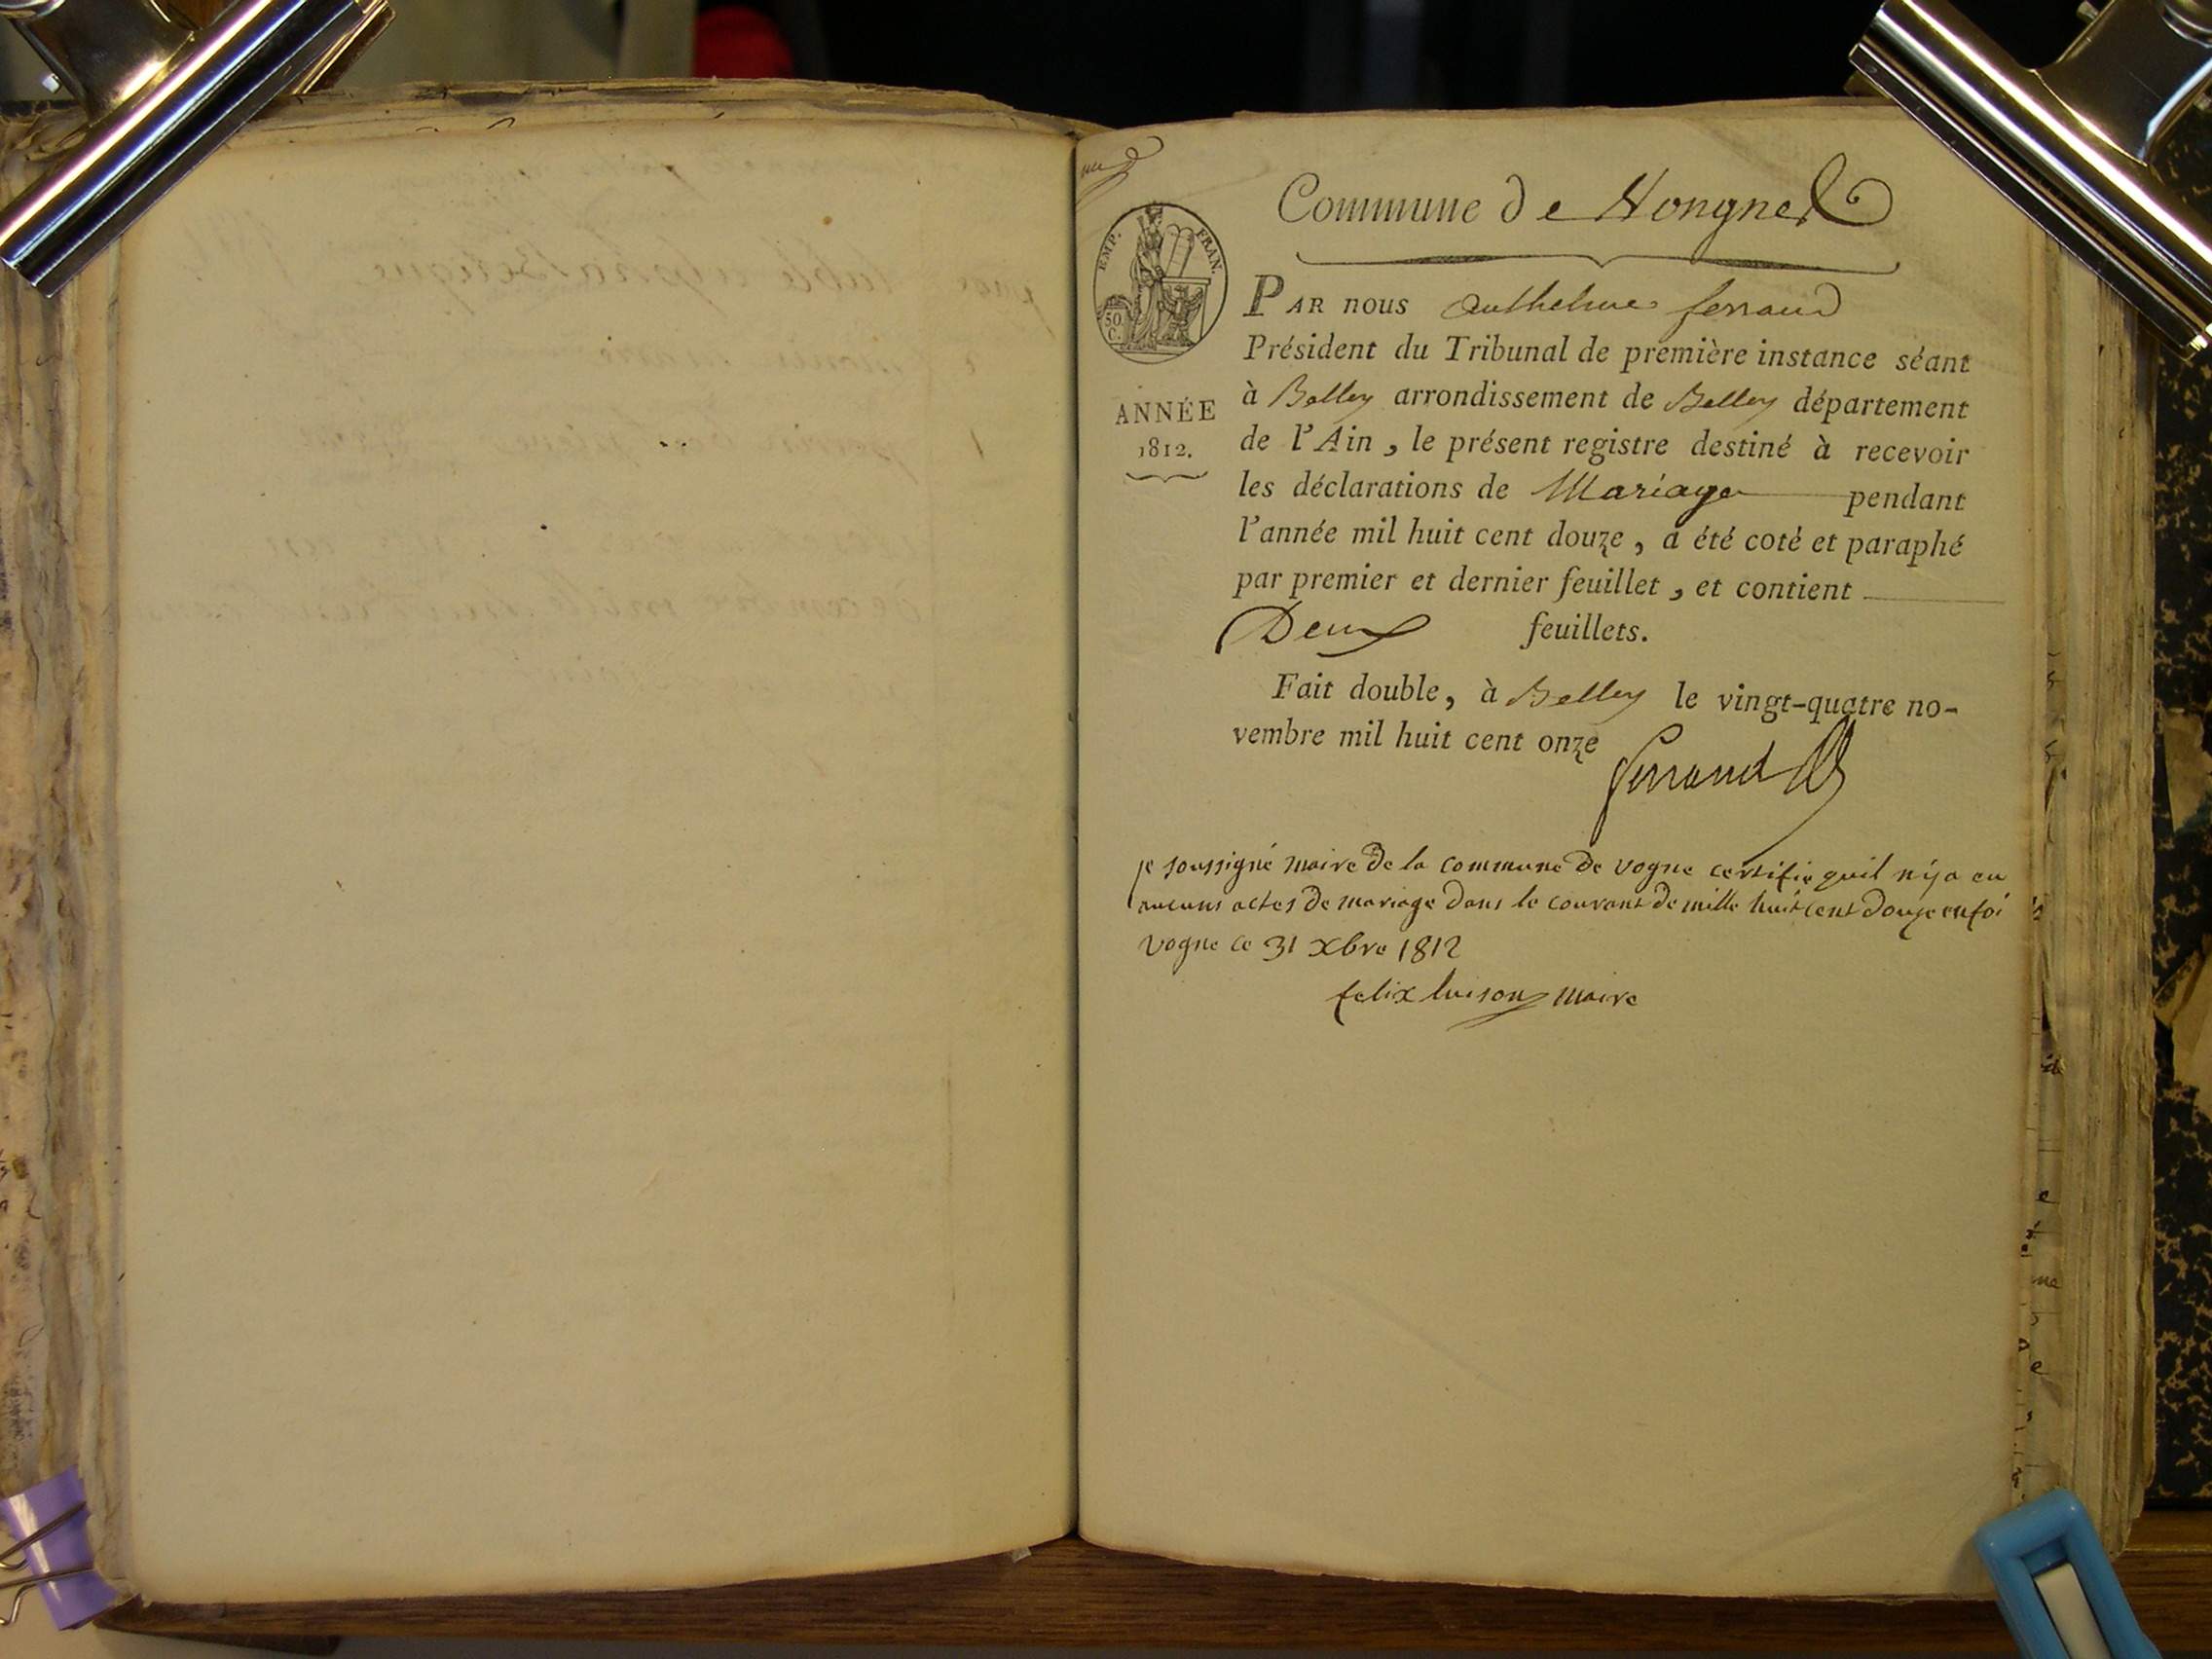 Commune de Vongnes
EMP. FRAN.
50 C.
ANNÉE
1812.
PAR nous Anthelme ferrand
Président du Tribunal de première instance séant
à Belley arrondissement de Belley département
de l'Ain, le présent registre destiné à recevoir
les déclarations de Mariage pendant
l'année mil huit cent douze, a été coté et paraphé
par premier et dernier feuillet, et contient
Deux feuillets.
Fait double, à Belley le vingt-quatre no-
vembre mil huit cent onze
ferrand
je soussigné maire de la commune de vogne certifie quil n'ja eu
aucuns actes de mariage dans le courant de mille huit cent douze en foi
vogne ce 31 xbre 1812
felix luison maire